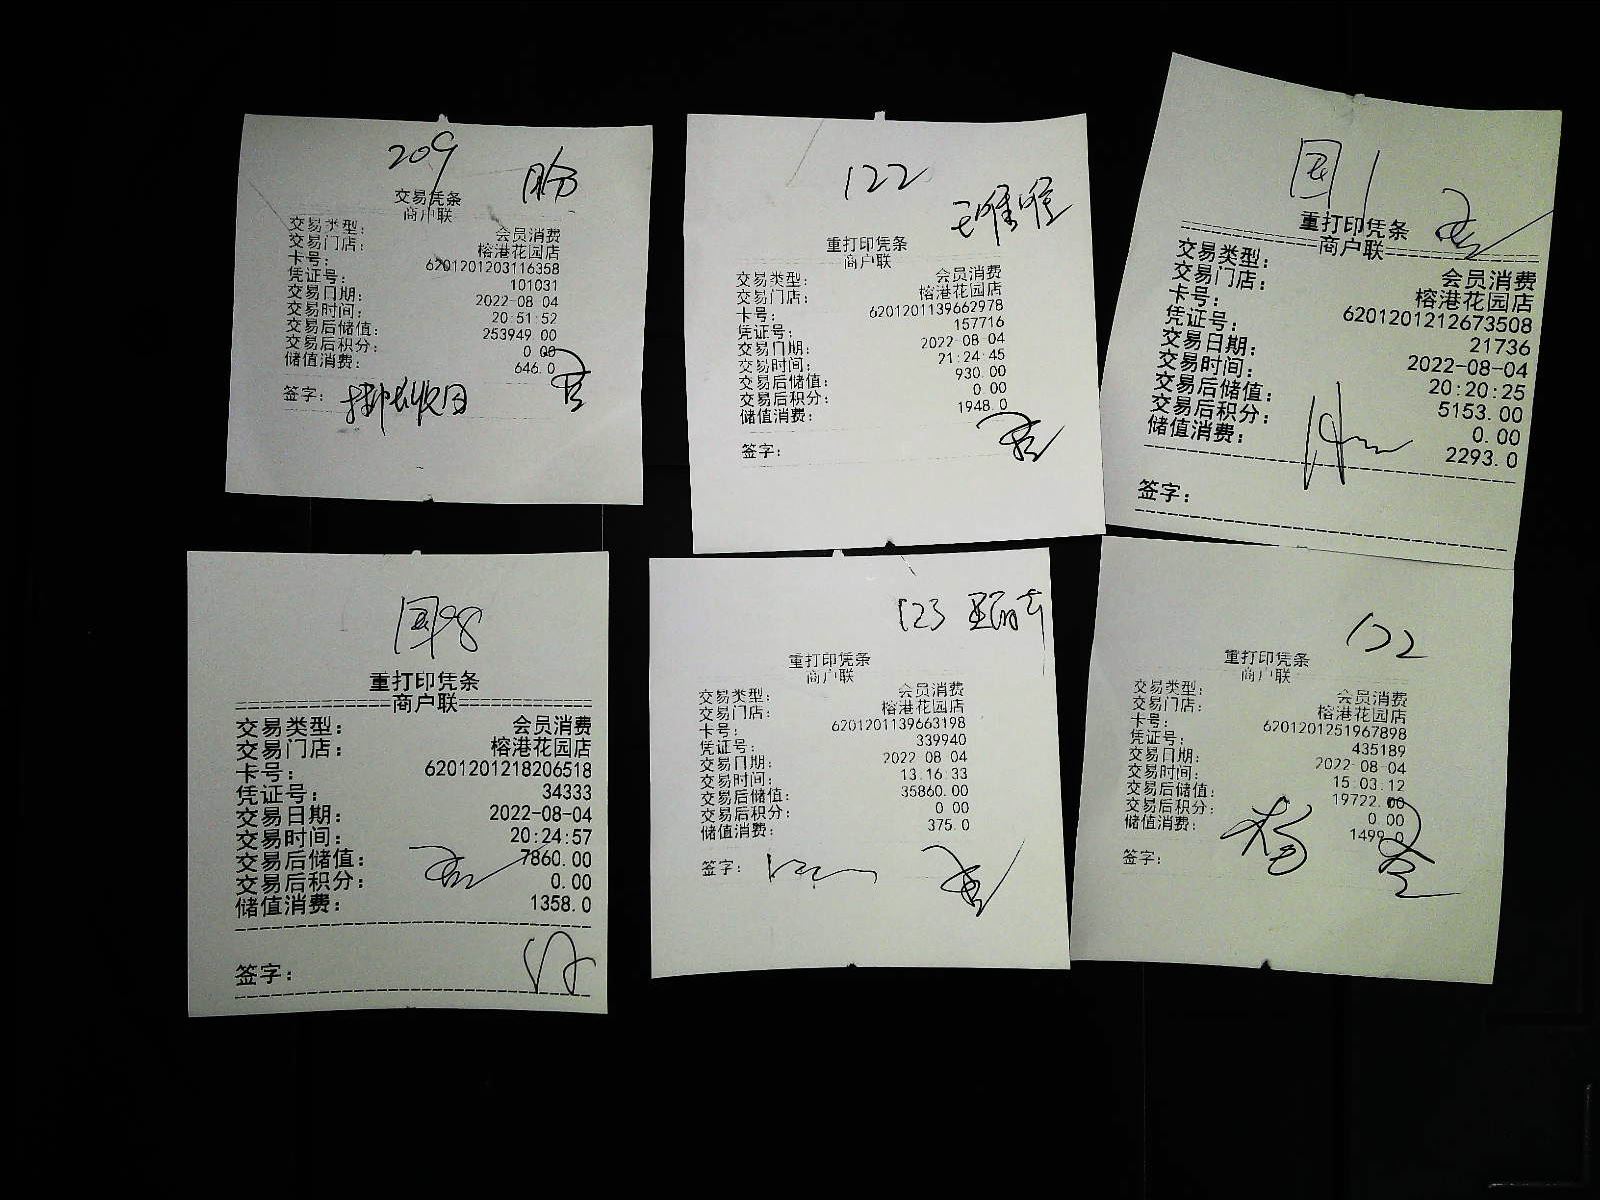 209
交易凭条
商户联
交易类型： 会员消费
交易门店： 榕港花园店
卡号： 6201201203116358
凭证号： 101031
交易日期： 2022-08-04
交易时间： 20:51:52
交易后储值： 253949.00
交易后积分： 0.00
储值消费： 646.0
签字：
122
重打印凭条
商户联
交易类型： 会员消费
交易门店： 榕港花园店
卡号： 6201201139662978
凭证号： 157716
交易日期： 2022-08-04
交易时间： 21:24:45
交易后储值： 930.00
交易后积分： 0.00
储值消费： 1948.0
签字：
重打印凭条
商户联
交易类型： 会员消费
交易门店： 榕港花园店
卡号： 6201201212673508
凭证号： 21736
交易日期： 2022-08-04
交易时间： 20:20:25
交易后储值： 5153.00
交易后积分： 0.00
储值消费： 2293.0
签字：
重打印凭条
商户联
交易类型： 会员消费
交易门店： 榕港花园店
卡号： 6201201218206518
凭证号： 34333
交易日期： 2022-08-04
交易时间： 20:24:57
交易后储值： 7860.00
交易后积分： 0.00
储值消费： 1358.0
签字：
123
重打印凭条
商户联
交易类型： 会员消费
交易门店： 榕港花园店
卡号： 6201201139663198
凭证号： 339940
交易日期： 2022-08-04
交易时间： 13:16:33
交易后储值： 35860.00
交易后积分： 0.00
储值消费： 375.0
签字：
122
重打印凭条
商户联
交易类型： 会员消费
交易门店： 榕港花园店
卡号： 6201201251967898
凭证号： 435189
交易日期： 2022-08-04
交易时间： 15:03:12
交易后储值： 19722.00
交易后积分： 0.00
储值消费： 1499.0
签字：